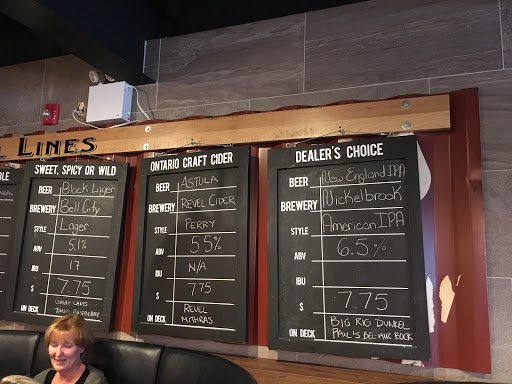 LINES
SWEET, SPICY OR WILD
BEER Black Lager
BREWERY Bell City
STYLE Lager
ABV 5.1%
IBU 17
$ 7.75
ON DECK
ONTARIO CRAFT CIDER
BEER ASTULA
BREWERY REVEL CIDER
STYLE PERRY
ABV 5.5%
IBU N/A
$ 7.75
ON DECK REVEL
MITHRAS
DEALER'S CHOICE
BEER New England IPA
BREWERY Nickelbrook
STYLE American IPA
ABV 6.5%
IBU
$ 7.75
ON DECK BIG RIG DUNKEL
PAUL'S BEL-AIR BOCK